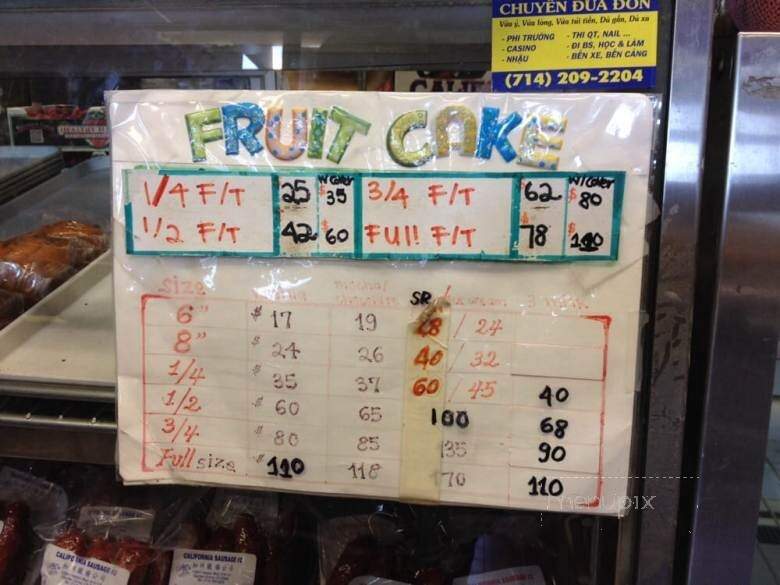 CHUYÊN ĐƯA ĐÓN
Vừa ý, Vừa lòng, Vừa túi tiền, Dù gần, Dù xa
- PHI TRƯỜNG - THI QT, NAIL ...
- CASINO - ĐI BS, HỌC & LÀM
- NHẬU - BẾN XE, BẾN CẢNG
(714) 209-2204
FRUIT CAKE
1/4 F/T 25 w/color $35 3/4 F/T 62 w/color $80
1/2 F/T 42 $60 Full F/T $78 $110
Size SR
6" $17 19 28 / 24
8" $24 26 40 / 32
1/4 35 37 60 / 45 40
1/2 $60 65 100 68
3/4 $80 85 135 90
Full size $110 118 170 110
CALIFORNIA SAUSAGE
CALIFORNIA SAUSAGE
menupix